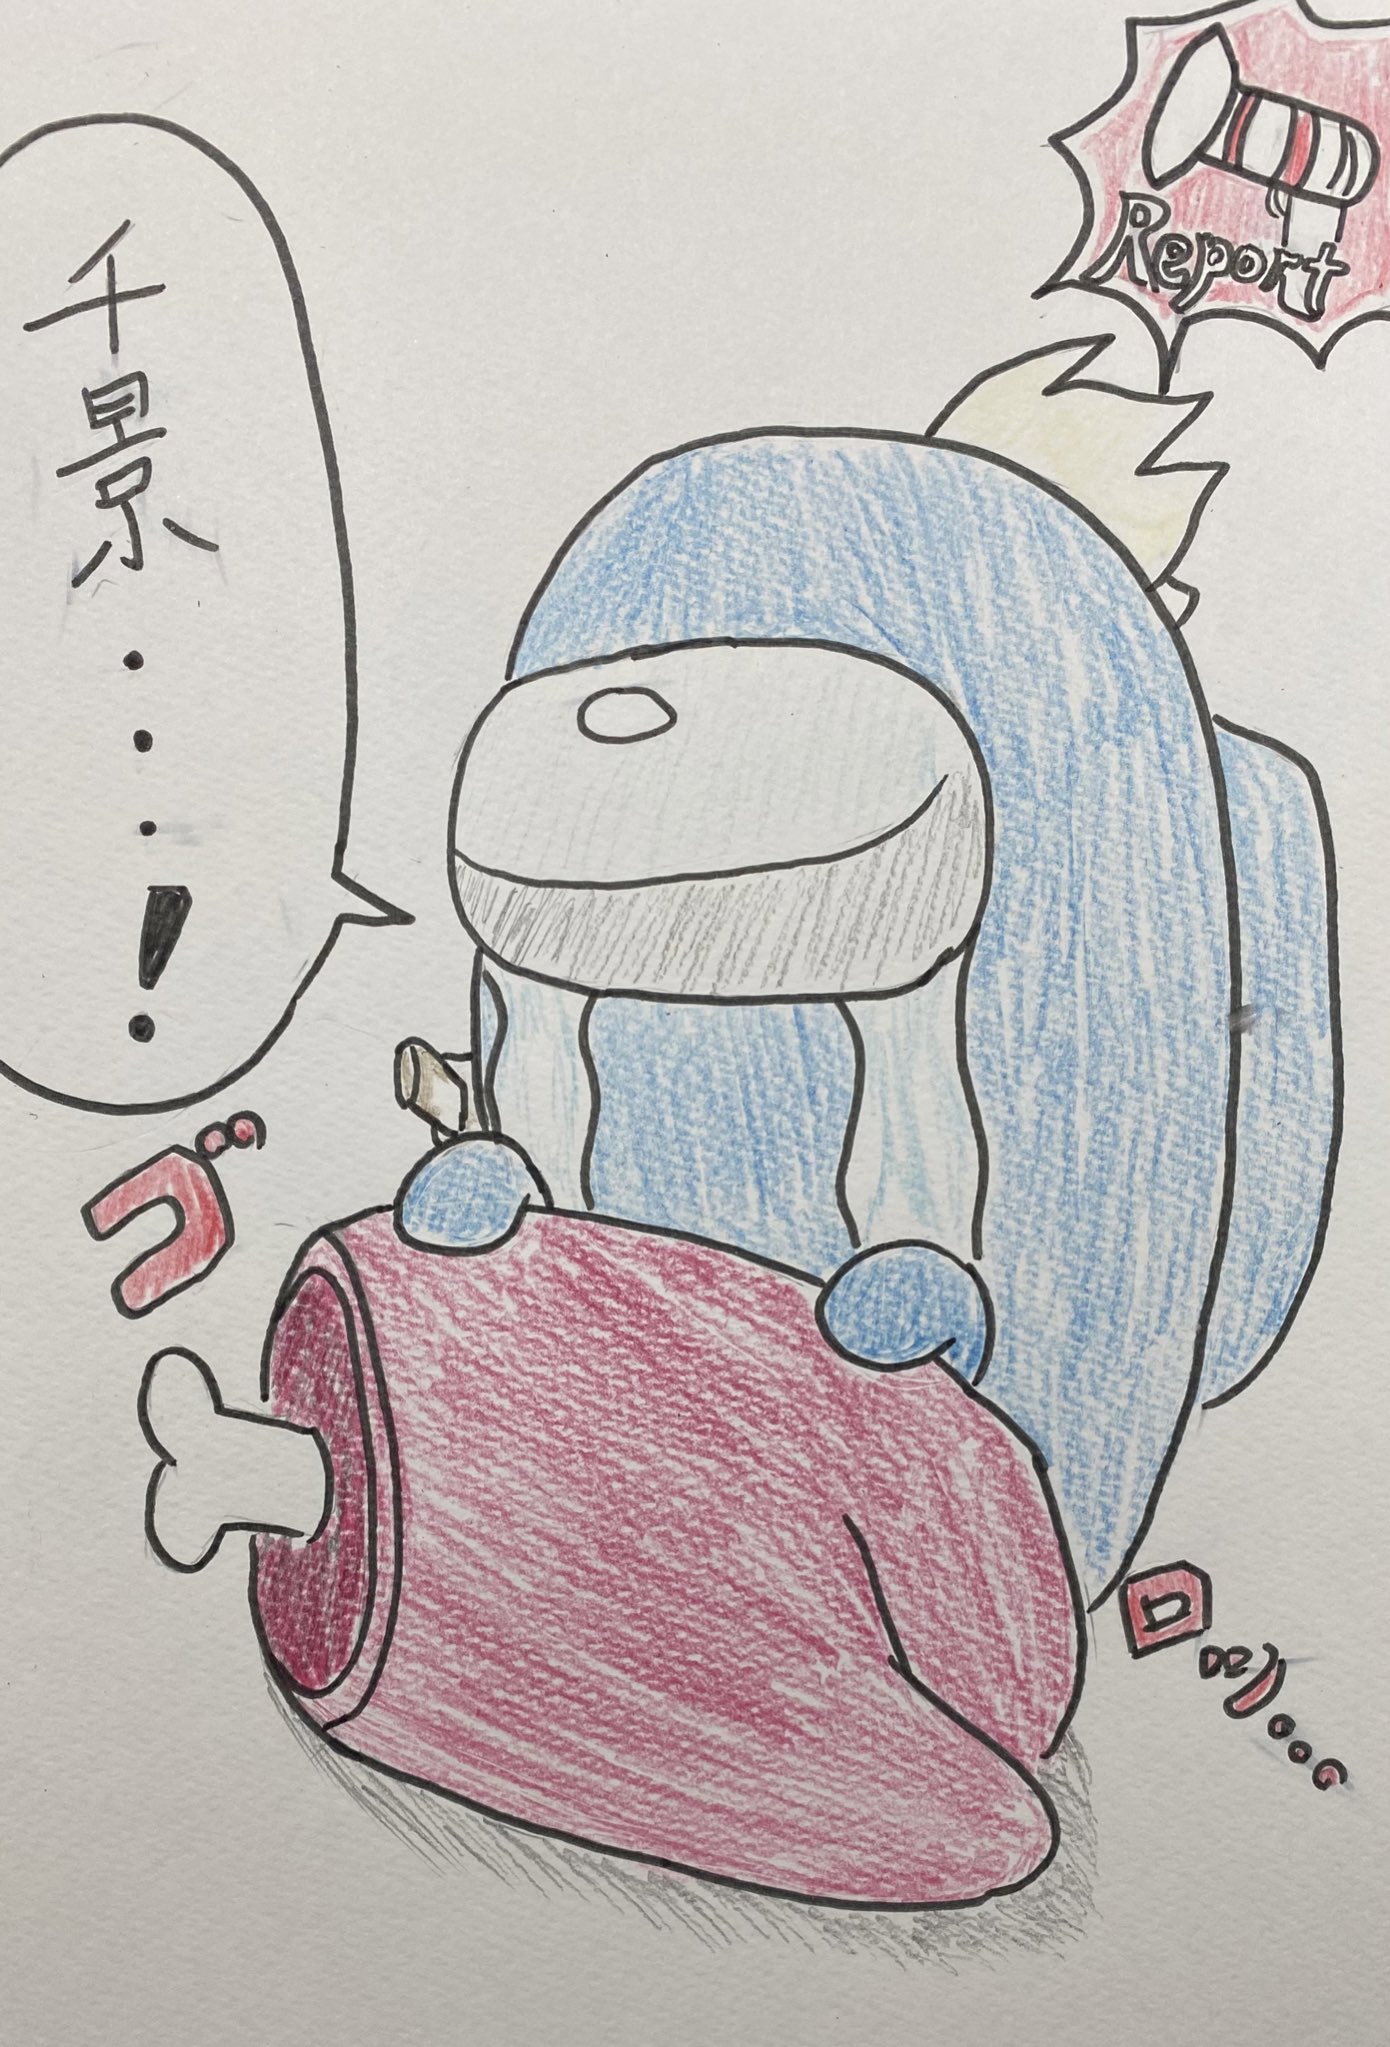 Report
千景・・・!
ゴ
ロッ・・・